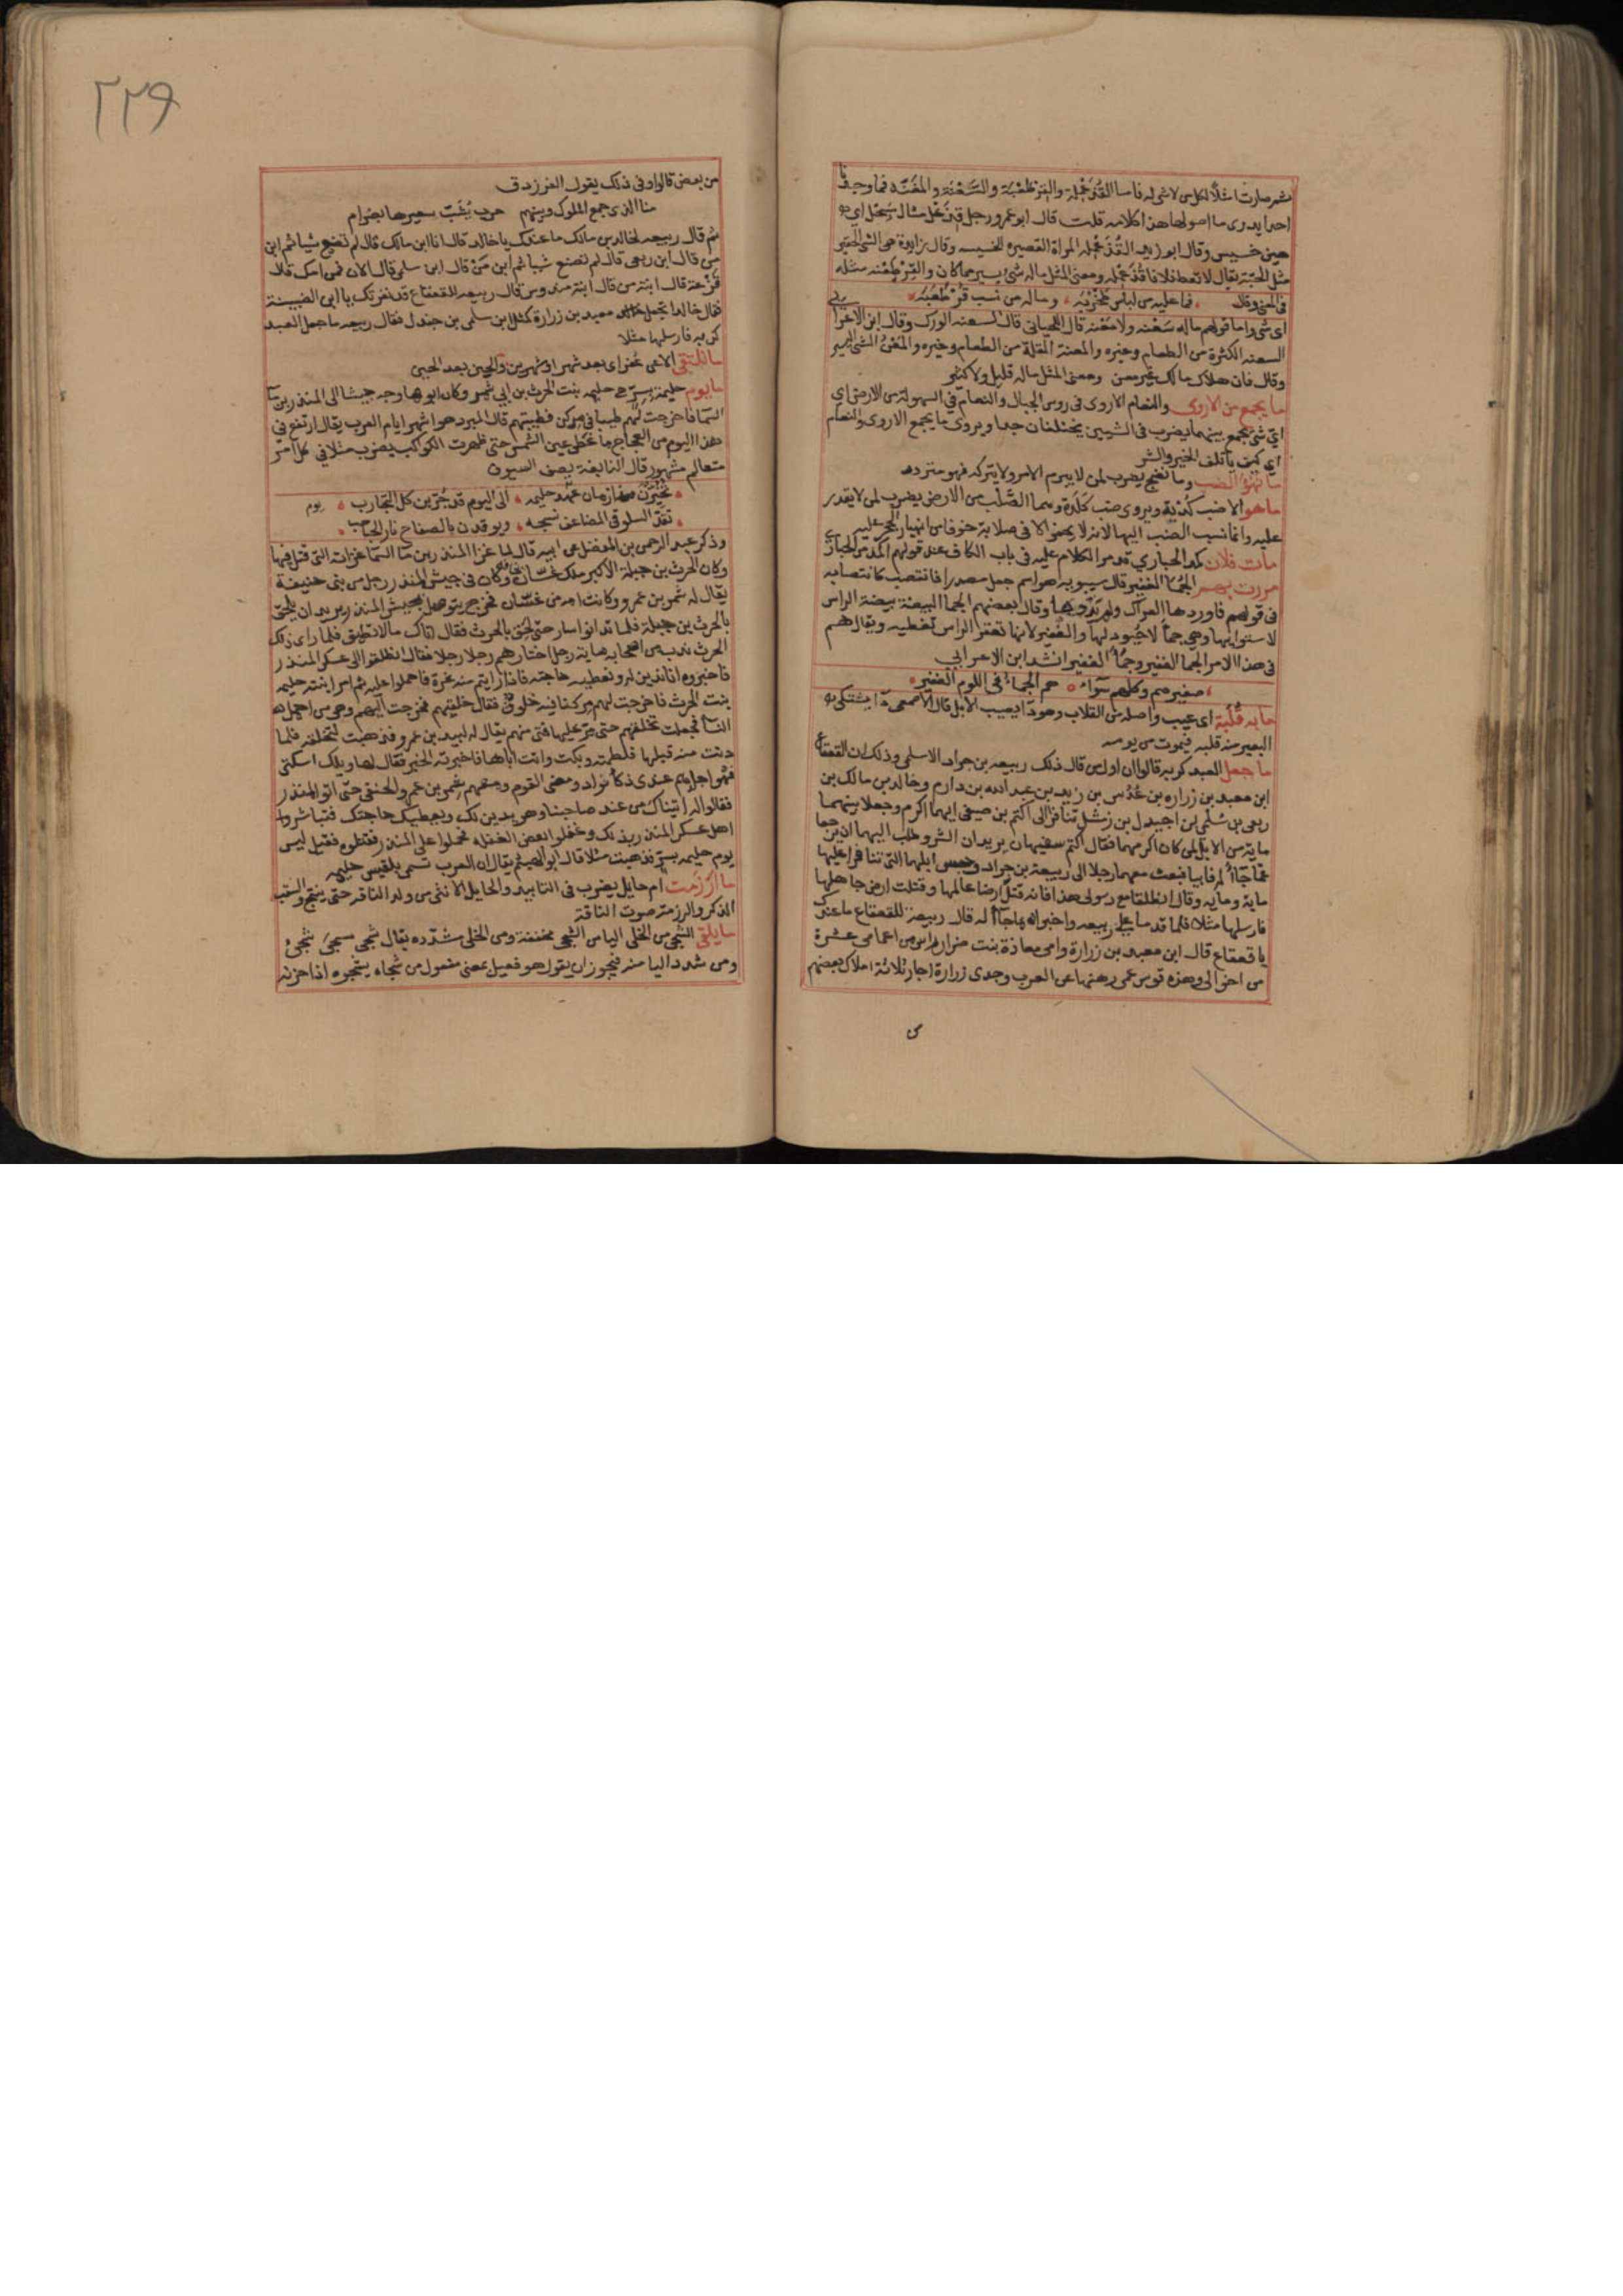 ثم صارت امثلا لكل من لا شي له فاما القذعملة والقرطعبة والسعنة والمعنة فما وجدنا
احدا يدرى ما اصولها هذا كلامه قلت قال ابو عمرو رجل قذعل مثال سبحل اي
هين خسيس وقال ابو زيد القذعمله المراة القصيره الخسيسه وقال زايدة هي الشى الحقير
مثل الحبة يقال لا تعط فلانا قذعمله ومعنى المثل ماله شى يسير مما كان والقرطعنه مثله
فى المعنى وقال فما عليه من لباس طحربه وماله من نسب قرطعبه
اى شى واما قولهم ماله سعنه ولا معنه قال اللحيانى قال السعنه الودك وقال ابن الاعرابى
السعنه الكثرة من الطعام وغيره والمعنة القلة من الطعام وغيره والمعن الشى اليسير
وقال فان هلاك مالك غير معن ومعنى المثل ماله قليل ولا كثير
ما يجمع بين الاروى والنعام الاروى فى روس الجبال والنعام فى السهولة من الارض اي
اي شى يجمع بينهما يضرب فى الشيين يختلفان جدا ويروى ما يجمع الاروى والنعام
اي كيف ياتلف الخير والشر
ما تنهؤ الضب وما نضج يضرب لمن لا يبرم الامر ولا يتركه فهو متردد
ما هو الا ضب كدية ويروى ضب كلدة وهما الصلب من الارض يضرب لمن لا يقدر
عليه وانما نسب الضب اليها لانه لا يحفر الا فى صلابة خوفا من انهيار الجحر عليه
مات فلان كمد الحبارى قد مر الكلام عليه فى باب الكاف عند قولهم اكمد من الحبارى
مررت بهم الجما الغفير قال سيبويه هو اسم جعل مصدرا فانتصب كانتصابه
فى قولهم فاوردها العراك ولم يذدها وقال بعضهم الجما البيضة بيضة الراس
لاستوايها وهى جما لا حيود لها والغفير لانها تغفر الراس تغطيه ويقال هم
فى هذا الامر الجما الغفير وجما الغفير انشد ابن الاعرابي
صغيرهم وكلهم سواء هم الجماء فى اللوم الغفير
ما به قلبة اى عيب واصله من القلاب وهو دا يصيب الابل قال الاصمعى دا يشتكى
البعير منه قلبه فيموت من يومه
ما جعل العبد كربه قالوا ان اول من قال ذلك ربيعه بن جراد الاسلمى وذلك ان القعقاع
ابن معبد بن زراره بن عدس بن زيد بن عبد الله بن دارم وخالد بن مالك بن
ربعى بن سلمى بن جندل بن نهشل تنافرا الى اكثم بن صيفى ايهما اكرم وجعلا بينهما
ماية من الابل لمن كان اكرمهما فقال اكثم سفيهان يريدان الشر وطلب اليهما ان يرجعا
عما جاا له فابيا فبعث معهما رجلا الى ربيعة بن جراد وحبس ابلهما التى تنافرا عليها
ماية وماية وقال انطلقا مع رسولى هذا فانه قتل ارضا عالمها وقتلت ارض جاهلها
فارسلها مثلا فلما قدما على ربيعه واخبراه بما جاا له قال ربيعة للقعقاع ما عندك
يا قعقاع قال ابن معبد بن زرارة وامى معاذة بنت ضرار راس من اعمامى عشرة
من اخوالى وهذه قوس عمى رهنها عن العرب وجدى زرارة اجار ثلاثة املاك بعضهم
من
٢٢٩
من بعض قالوا وفى ذلك يقول الفرزدق
منا الذى جمع الملوك وبينهم حرب يشب سعيرها بضرام
ثم قال ربيعه لخالد بن مالك ما عندك يا خالد قال انا ابن مالك قال لم تصنع شيا ثم ابن
من قال ابن ربعى قال لم تصنع شيا ثم ابن من قال ابن سلمى قال الان فمن امك قال
فرعة قال ابنة من قال ابنة مندوس قال ربيعه للقعقاع قد نفرتك يا ابن الضبينة
فقال خالد اتجعل معبد بن زرارة كمثل ابن سلمى بن جندل فقال ربيعه ما جعل العبد
كربه فارسلها مثلا
ما نلتقى الا عن عفر اى بعد شهر او شهرين والحين بعد الحين
ما يوم حليمة بسر هى حليمه بنت الحرث بن ابي شمر وكان ابوها وجه جيشا الى المنذر بن ما
السما فاخرجت لهم طيبا فى مركن فطيبتهم قال المبرد هو اشهر ايام العرب يقال ارتفع فى
هذا اليوم من العجاج ما غطى عين الشمس حتى ظهرت الكواكب يضرب مثلا فى كل امر
متعالم مشهور قال النابغة يصف السيوف
تخيرن من ازمان عهد حليمه الى اليوم قد جربن كل التجارب
تقد السلوقى المضاعف نسجه ويوقدن بالصفاح نار الحباحب
وذكر عبد الرحمن بن المفضل عن ابيه قال لما غزا المنذر بن ما السما غزاته التى قتل فيها
وكان الحرث بن جبلة الاكبر ملك غسان وكان فى جيش المنذر رجل من بنى حنيفة
يقال له شمر بن عمرو وكانت امه من غسان فخرج يتوصل بجيش المنذر يريد ان يلحق
بالحرث بن جبلة فلما تدانوا سار حتى لحق بالحرث فقال اتاك مالا تطيق فلما راى ذلك
الحرث ندب من اصحابه ماية رجل اختارهم رجلا رجلا فقال انطلقوا الى عسكر المنذر
فاخبروه انا ندين له ونعطيه حاجته فاذا رايتم منه غرة فاحملوا عليه ثم امر ابنته حليمه
بنت الحرث فاخرجت لهم مركنا فيه خلوق فقال خلقيهم فخرجت اليهم وهى من اجمل
النسا فجعلت تخلقهم حتى مر عليها فتى منهم يقال له لبيد بن عمرو فذهبت لتخلقه فلما
دنت منه قبلها فلطمته وبكت واتت اباها فاخبرته الخبر فقال لها ويلك اسكتى
فهو اجراهم عندى ذكا فواد ومضى القوم ومعهم شمر بن عمرو الحنفى حتى اتوا المنذر
فقالوا له اتيناك من عند صاحبنا وهو يدين لك ويعطيك حاجتك فتباشروا
اهل عسكر المنذر بذلك وغفلوا بعض الغفله فحملوا على المنذر فقتلوه فقيل ليس
يوم حليمه بسر فذهبت مثلا قال ابو الهيثم يقال ان العرب تسمى بلقيس حليمه
ما ارزمت ام حايل يضرب فى التابيد والحايل الانثى من ولد الناقه حتى ينتج والسقب
الذكر والرزمة صوت الناقة
ما يلقى الشجى من الخلى اليا من الشجى مخففة ومن الخلى مشدده يقال شجى يشجى شجى
ومن شدد اليا منه فيجوز ان يقول هو فعيل بمعنى مفعول من شجاه يشجوه اذا حزنه